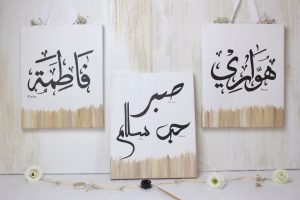 هواري
صبر
حب سلام
فاطمة